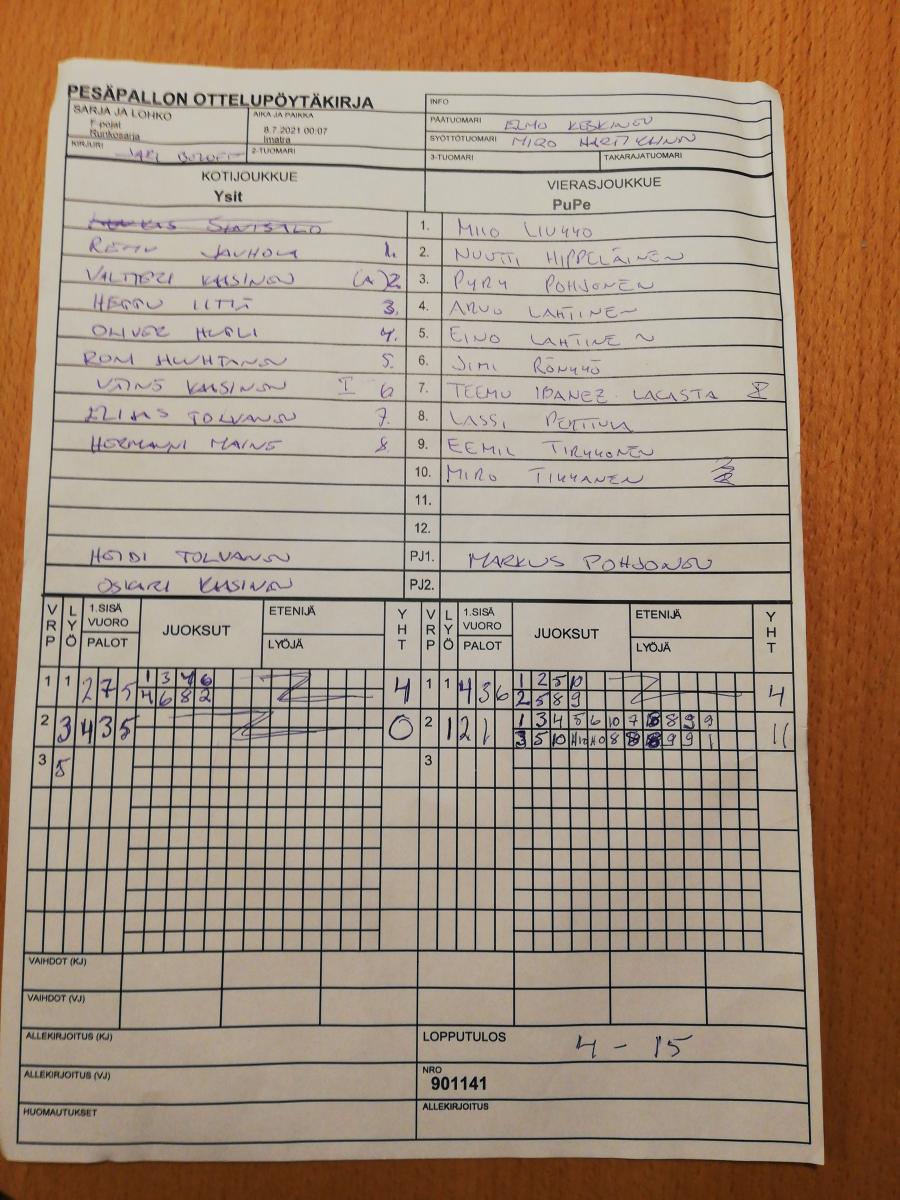 PESÄPALLON OTTELUPÖYTÄKIRJA
SARJA JA LOHKO
F-pojat
Runkosarja
AIKA JA PAIKKA
8.7.2021 00:07
Imatra
INFO
PÄÄTUOMARI ELMO KESKINEN
SYÖTTÖTUOMARI MIRO
KIRJURI
2-TUOMARI
3-TUOMARI
TAKARAJATUOMARI
KOTIJOUKKUE
Ysit
VIERASJOUKKUE
PuPe
1. MILO LIUKKO
REMU JAUHOLA 1. 2. NUUTTI HIPPELÄINEN
VALTTERI KAASINEN (A) 2. 3. PYRY POHJONEN
3. 4. ARVO LAHTINEN
OLIVER 4. 5. EINO LAHTINEN
RONI HUUHTANEN 5. 6. JIMI RÖNKKÖ
VÄINÖ KAASINEN I 6 7. TEEMU IBANEZ LACASTA
ELIAS TOLVANEN 7. 8. LASSI PERTTULA
HERMANNI 8. 9. EEMIL TIRKKONEN
10. MIRO TIKKANEN
11.
12.
HEIDI TOLVANEN PJ1. MARKUS POHJONEN
OSKARI KAASINEN PJ2.
VRP LYÖ 1.SISÄ VUORO PALOT JUOKSUT ETENIJÄ LYÖJÄ YHT VRP LYÖ 1.SISÄ VUORO PALOT JUOKSUT ETENIJÄ LYÖJÄ YHT
1 1 2 7 5 1 3 4 6 4 1 1 4 3 6 1 2 5 10 4
4 6 8 2 2 5 8 9
2 3 4 3 5 0 2 1 2 1 1 3 4 5 6 10 7 8 8 9 9 11
3 5 10
3 5 3
VAIHDOT (KJ)
VAIHDOT (VJ)
ALLEKIRJOITUS (KJ)
LOPPUTULOS 4 - 15
ALLEKIRJOITUS (VJ)
NRO
901141
HUOMAUTUKSET
ALLEKIRJOITUS